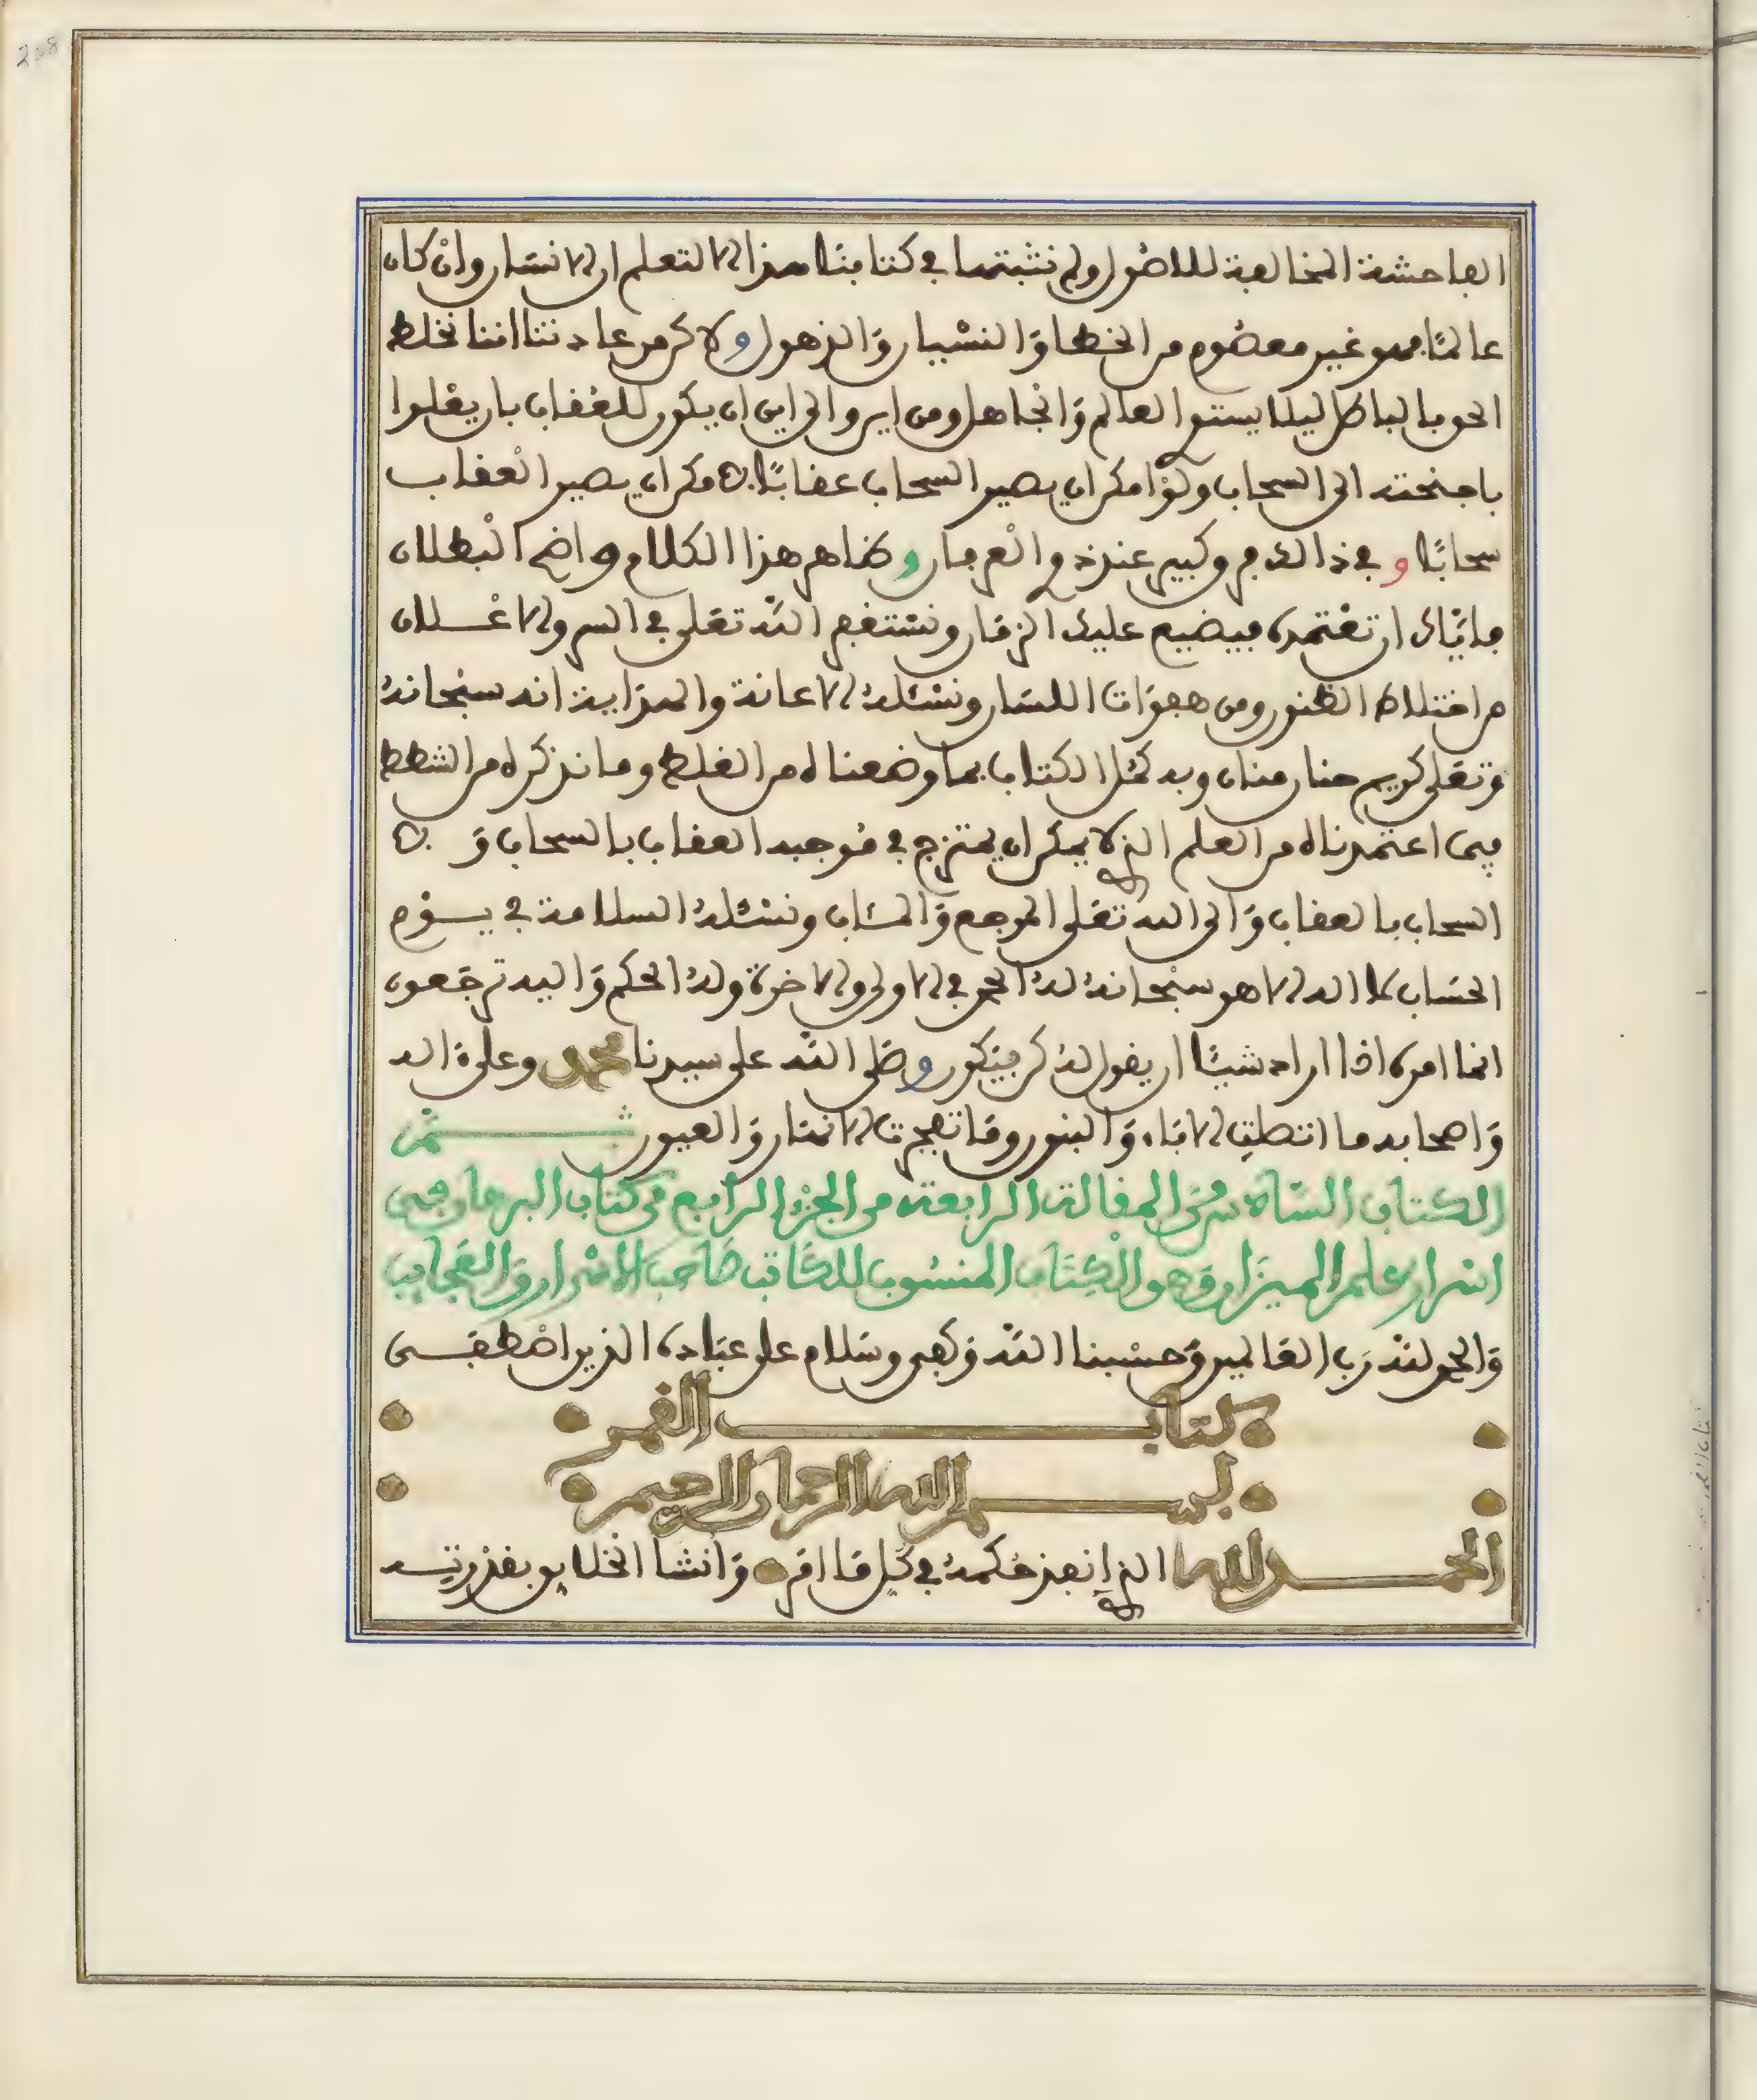 208
الفاحشة المخالفة للاصول ولم نثبتها في كتابنا هذا الا لتعلم ان الانسان وان كان
عالما فهو غير معصوم من الخطا والنسيان والذهول ولاكن من عادتنا اننا نخلط
الحق بالباطل ليلا يستوي العالم والجاهل ومن اين والى اين ان يكون للعقاب بان يعلوا
باجنحته الى السحاب ولو امكن ان يصير السحاب عقابا لامكن ان يصير العقاب
سحابا وفي ذالك فرق كبير عند ذوي العرفان وظاهر هذا الكلام واضح البطلان
فاياك ان تعتمده فيضيع عليك الزمان ونستغفر الله تعلى في السر والاعلان
من اختلاط الظنون ومن هفوات اللسان ونسئله الاعانة والهداية انه سبحانه
وتعلى كريم حنان منان وبه كمل الكتاب بما وضعناه من الغلط وما نذكره من الشطط
فيما اعتمدناه من العلم الذي لا يمكن ان يمتزج في موجبه العقاب بالسحاب ولا
السحاب بالعقاب والى الله تعلى المرجع والمئاب ونسئله السلامة في يوم
الحساب لا اله الا هو سبحانه له الحمد في الاولى والاخرة وله الحكم واليه ترجعون
انما امره اذا اراد شيئا ان يقول له كن فيكون وصلى الله على سيدنا محمد وعلى ءاله
واصحابه ما انتطقت الاباء والبنون وما تفجرت الانهار والعيون تم
الكتاب السادس من المقالة الرابعة من الجزء الرابع من كتاب البرهان في
اسرار علم الميزان وهو الكتاب المنسوب للكاتب صاحب الاسرار والعجايب
والحمد لله رب العالمين وحسبنا الله وكفى وسلام على عباده الذين اصطفى
كتاب القمر
بسم الله الرحمان الرحيم
الحمد لله الذي انفذ حكمه في كل ما امر وانشا الخلايق بقدرته